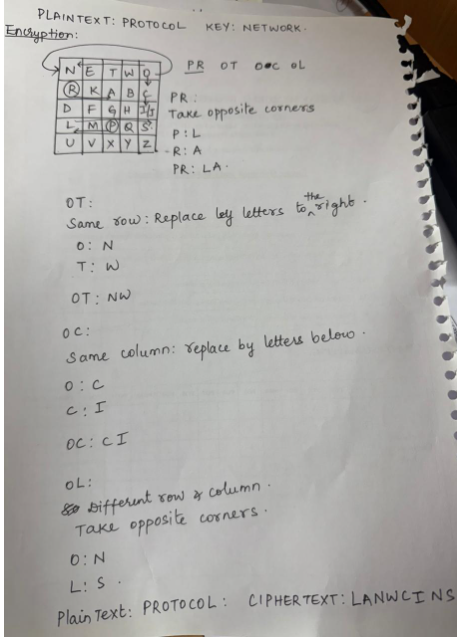 PLAINTEXT: PROTOCOL KEY: NETWORK.
Encryption:
N E T W O
R K A B C
D F G H I/J
L M P Q S
U V X Y Z
PR OT OC OL
PR:
Take opposite corners
P: L
R: A
PR: LA.
OT:
Same row: Replace by letters to the right.
O: N
T: W
OT: NW
OC:
Same column: replace by letters below.
O: C
C: I
OC: CI
OL:
Different row & column.
Take opposite corners.
O: N
L: S.
Plain Text: PROTOCOL: CIPHERTEXT: LANWCINS